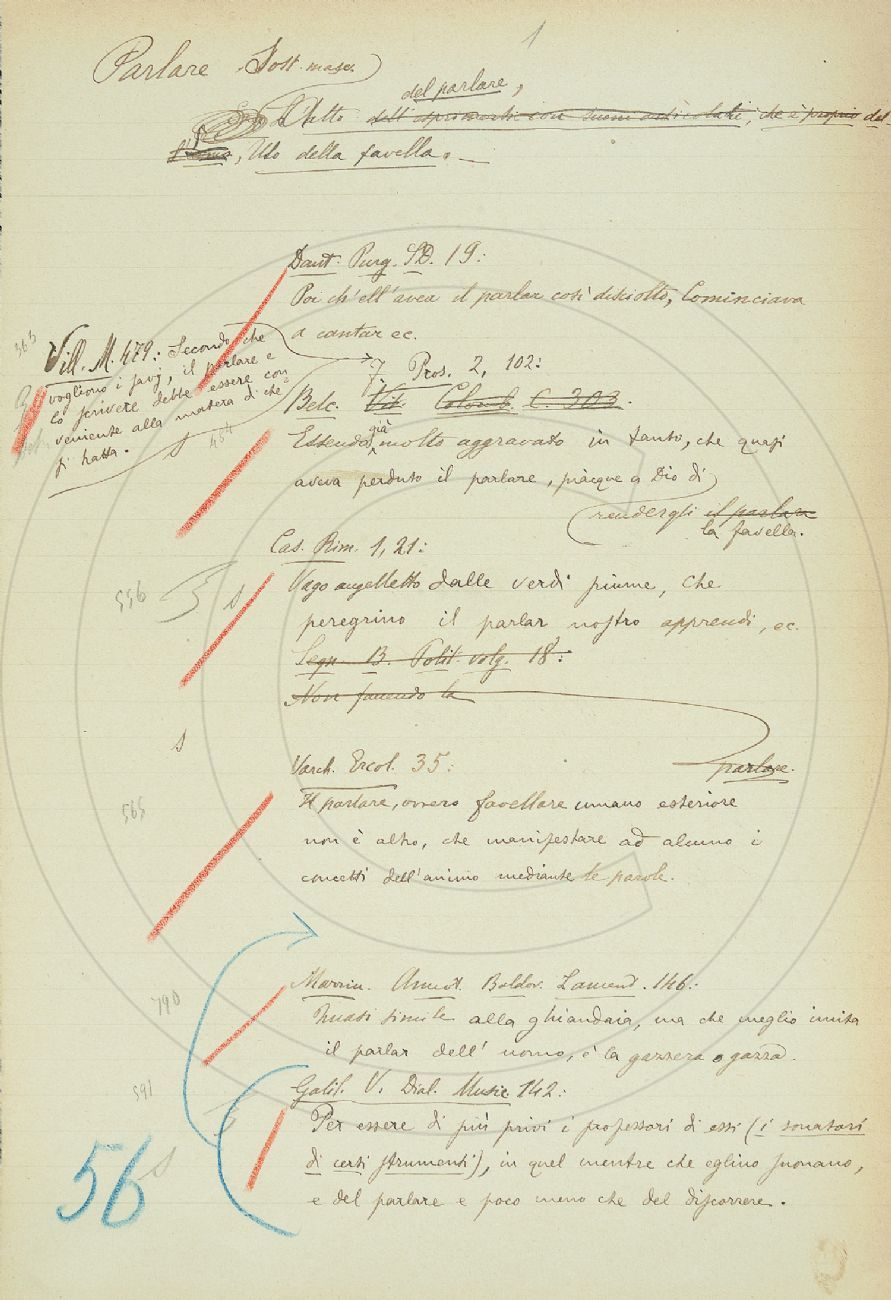 1
Parlare Sost. masc.
del parlare,
L'Atto dell'esprimersi con suoni articolati, che è proprio del
l'uomo, Uso della favella. —
Dant. Purg. 19:
Poi ch'ell'avea il parlar così disciolto, Cominciava
a cantar ec.
363
Vill. M. 479: Secondo che
vogliono i savj, il parlare e
lo scrivere debbe essere con
veniente alla matera di che
si tratta.
7. Pros. 2, 102:
Belc. Vit. Colomb. C. 303.
484
Essendo già molto aggravato in tanto, che quasi
aveva perduto il parlare, piacque a Dio di
rendergli il parlare
la favella.
Cas. Rim. 1, 21:
556
S
Vago augelletto dalle verdi piume, Che
peregrino il parlar nostro apprendi, ec.
Segn. B. Polit. volg. 18:
Non facendo la
parlare.
S
Varch. Ercol. 35:
565
Il parlare, ovvero favellare umano esteriore
non è altro, che manifestare ad alcuno i
concetti dell'animo mediante le parole.
790
Marrin. Annot. Baldov. Lament. 146:
Quasi simile alla ghiandaia, ma che meglio imita
il parlar dell'uomo, è la gazzera o gazza.
591
Galil. V. Dial. Music. 142:
Per essere di più privi i professori di essi (i sonatori
di certi strumenti), in quel mentre che eglino suonano,
e del parlare e poco meno che del discorrere.
56
S